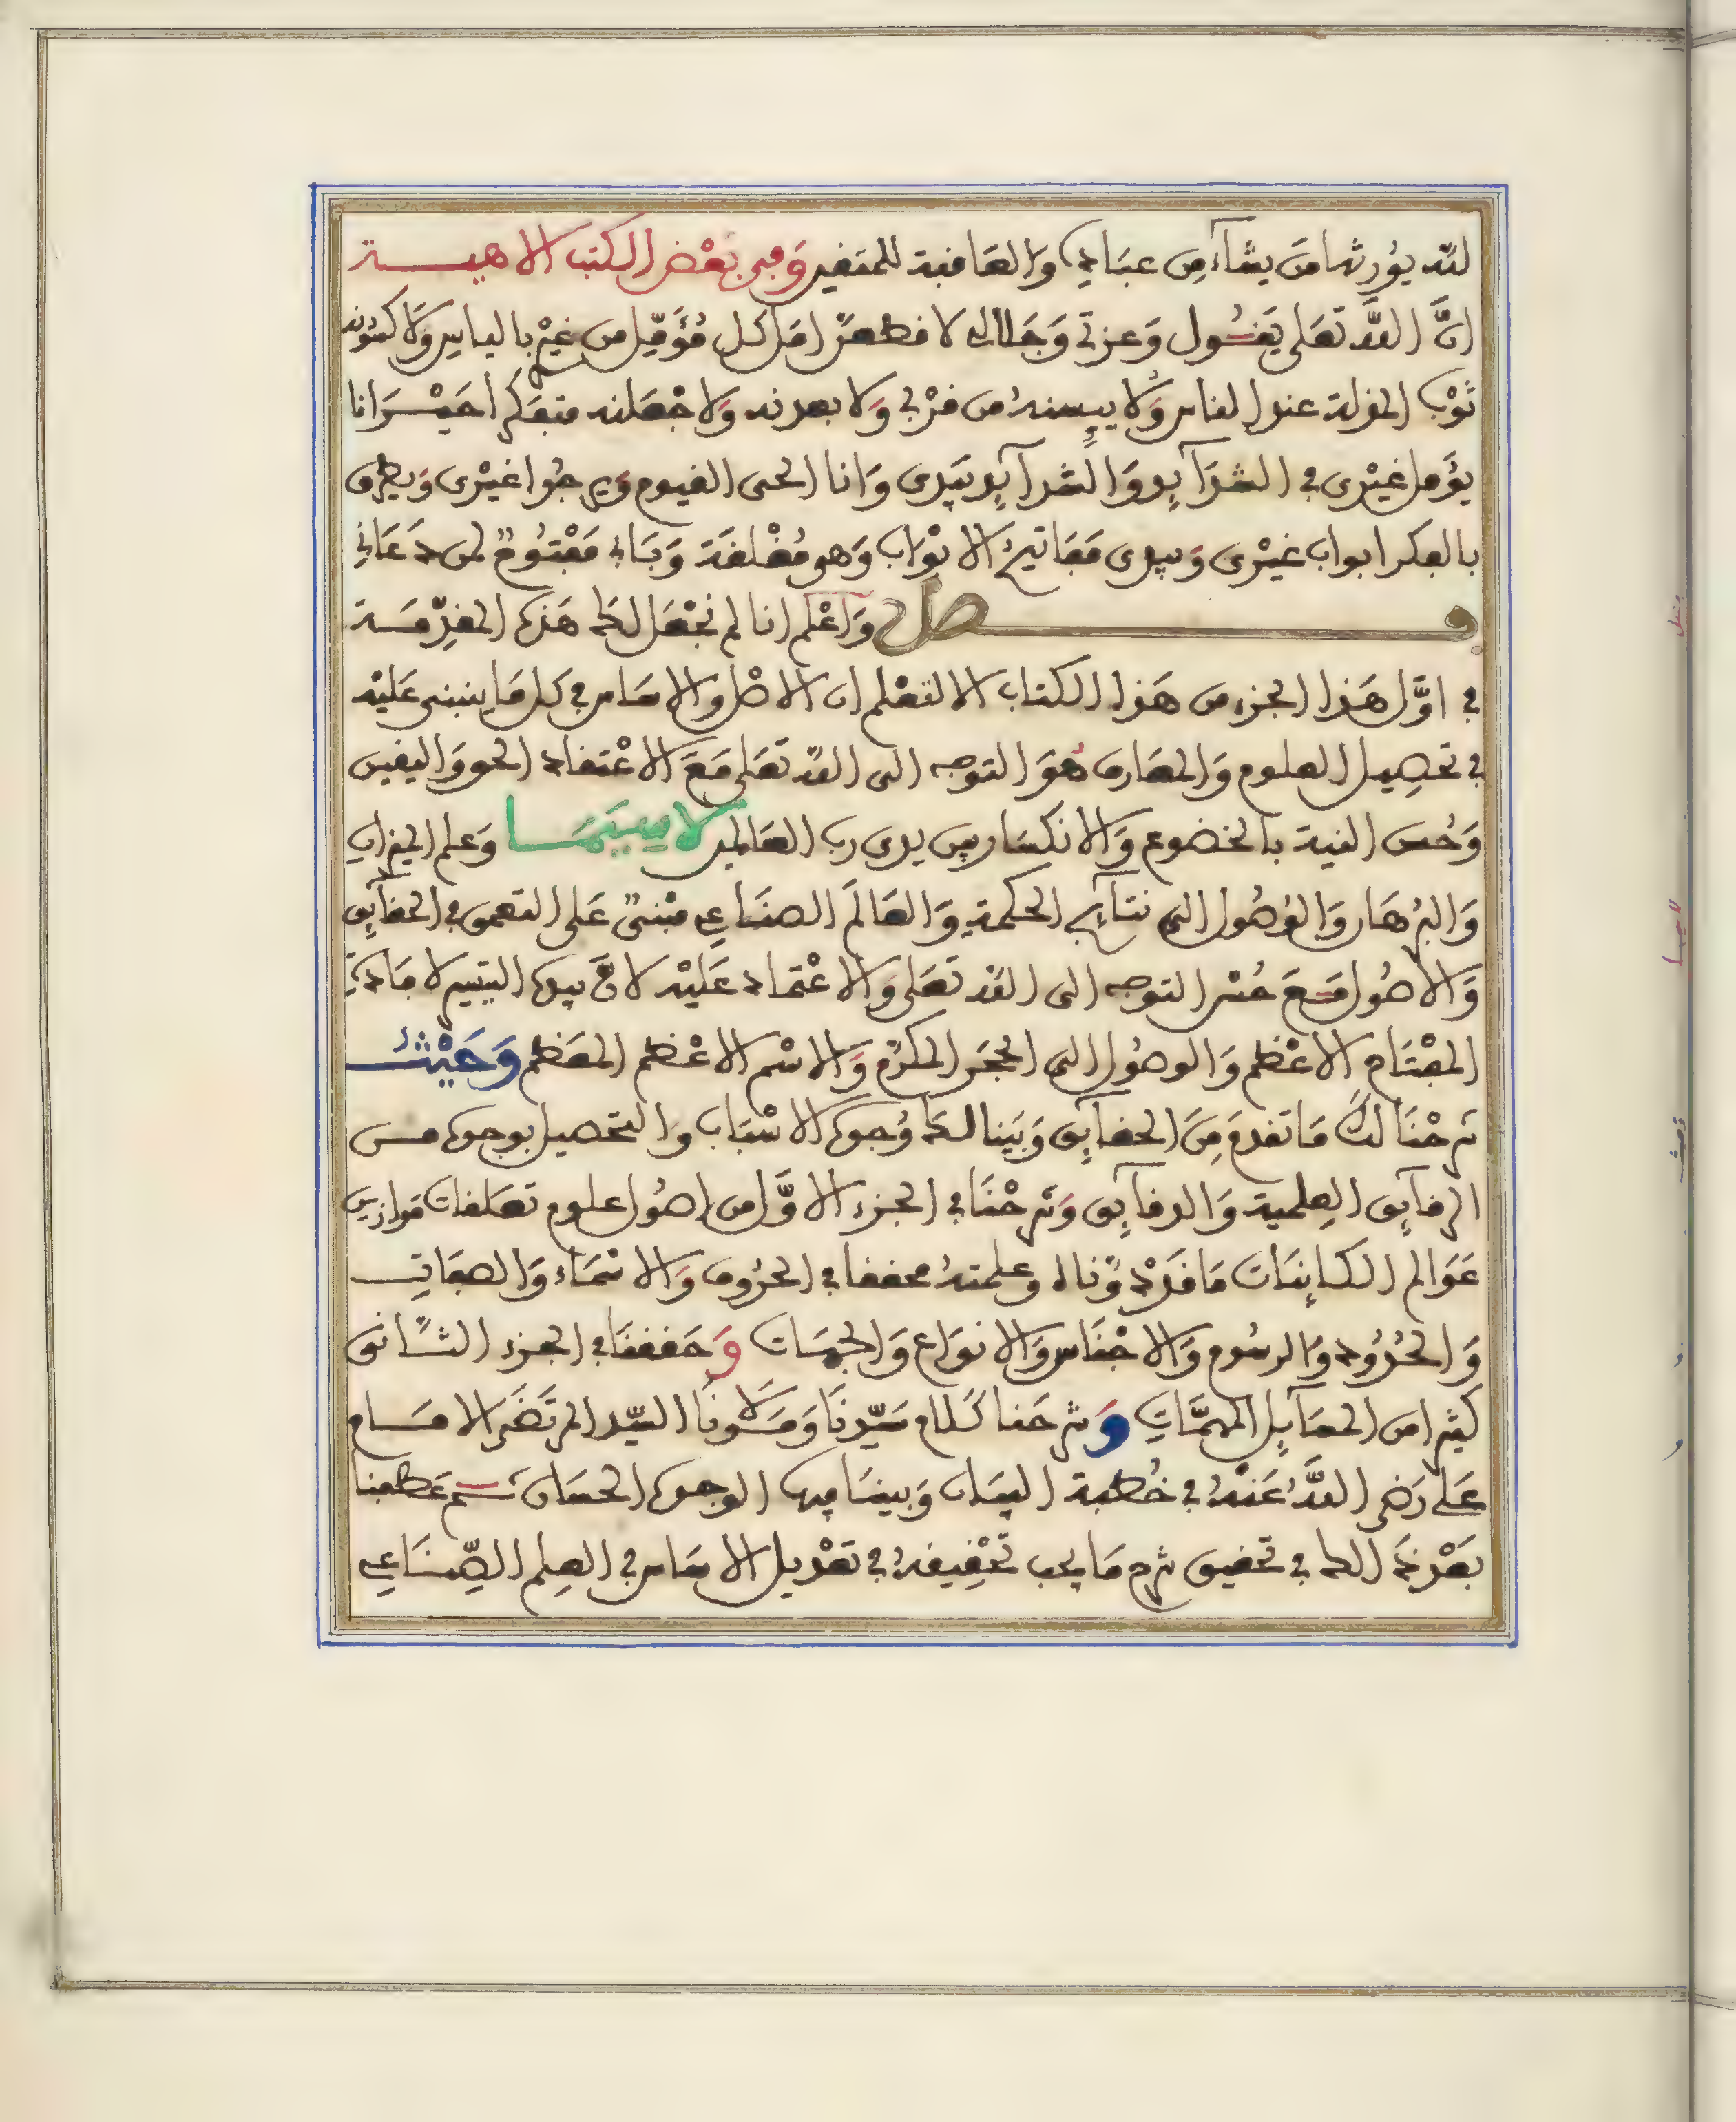 لله يورثها من يشاء من عباده والعاقبة للمتقين وفي بعض الكتب الالاهية
ان الله تعلى يقول وعزتي وجلالي لا قطعن امل كل مؤمل من غيري بالياس ولاكسونه
ثوب المذلة عند الناس ولايبسنه من قربي ولابعدنه ولاجعلنه متفكرا حيران
يؤمل غيري في الشدآئد والشدآئد بيدى وانا الحى القيوم ويرجوا غيرى ويطرق
بالفكر ابواب غيرى وبيدى مفاتيح الابواب وهى مغلقة وبابي مفتوح لمن دعاني
فصل واعلم انا لم نجعل لك هذه المقدمة
في اول هذا الجزء من هذا الكتاب الا لتعلم ان الاصل والاساس في كل ما ينبنى عليه
في تحصيل العلوم والمعارف هو التوجه الى الله تعلى مع الاعتقاد الحق واليقين
وحسن النية بالخضوع والانكسار بين يدى رب العالمين لاسيما وعلم الميزان
والبرهان والوصول الى نتايج الحكمة والعالم الصناعي مبنى على التعمق في الحقآئق
والاصول مع حسن التوجه الى الله تعلى والاعتماد عليه لان بيده التيسير لافادة
المفتاح الاعظم والوصول الى الحجر المكرم والاسم الاعظم المعظم وحيث
شرحنا لك ما تقدم من الحقآئق وبينا لك وجوه الاسباب والتحصيل بوجوه من
الرقآئق العلمية والدقآئق وشرحنا في الجزء الاول من اصول علوم تعلقات موازين
عوالم الكاينات ما قد دوناه وعلمته محققا في الحروف والاسماء والصفات
والحدود والرسوم والاجناس والانواع والجهات وحققنا في الجزء الثانى
كثيرا من المسآئل المهمات وشرحنا كلام سيدنا ومولانا السيد المرتضى الامام
على رضى الله عنه في خطبة البيان وبينا فيها الوجوه الحسان ثم عطفنا
بعد ذلك في تحقيق شرح ما يجب تحقيقه في تعديل الاساس في العلم الصناعي